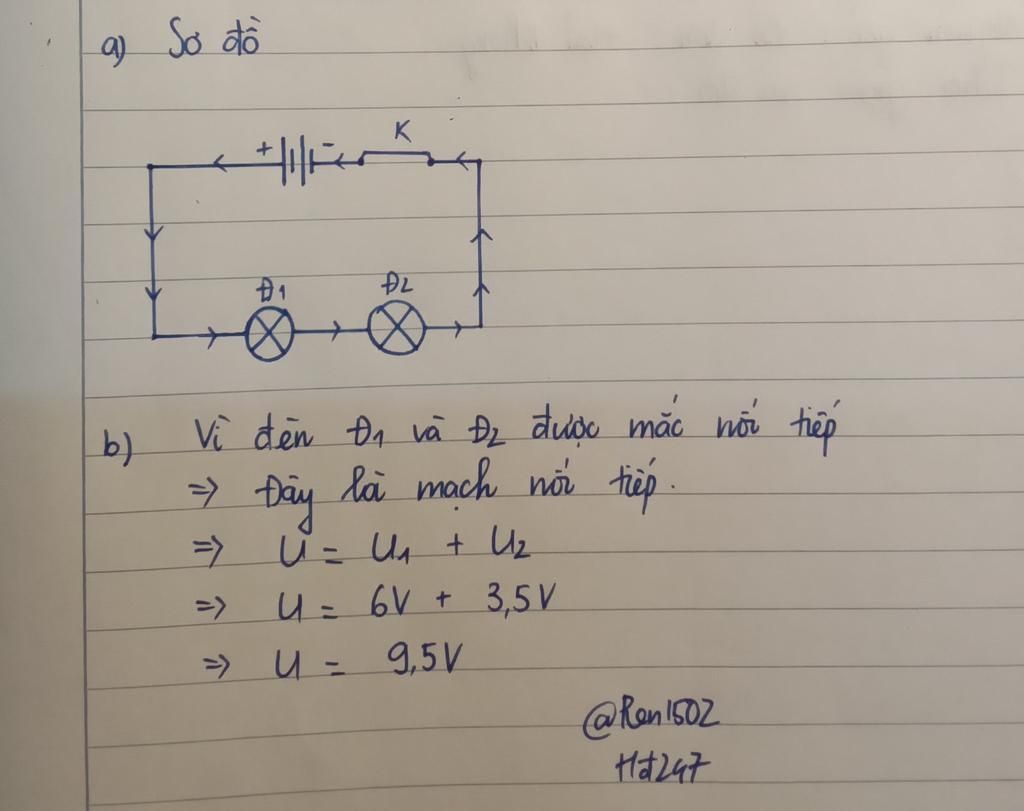 a) Sơ đồ
+ - K
Đ1 Đ2
b) Vì đèn Đ1 và Đ2 được mắc nối tiếp
=> Đây là mạch nối tiếp.
=> U = U1 + U2
=> U = 6V + 3,5V
=> U = 9,5V
@Ren1502
Hd247